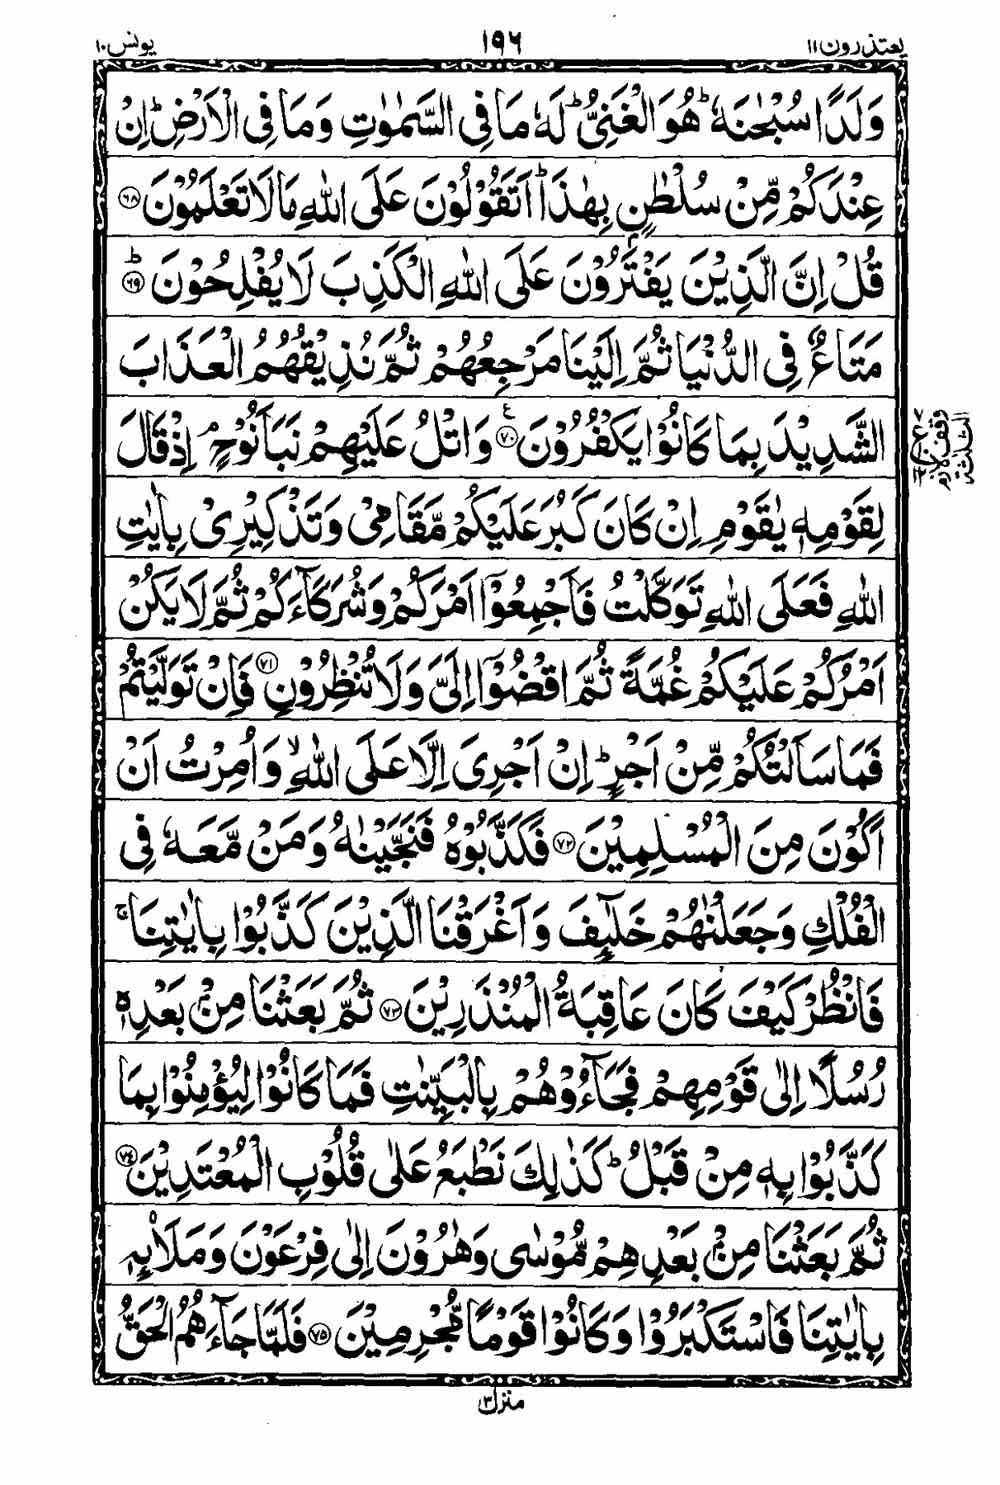 یعتذرون ۱۱
۱۹۶
یونس ۱۰
وَلَدًا سُبْحٰنَهٗ ؕ هُوَ الْغَنِیُّ ؕ لَهٗ مَا فِی السَّمٰوٰتِ وَمَا فِی الْاَرْضِ ؕ اِنْ
عِنْدَكُمْ مِّنْ سُلْطٰنٍۭ بِهٰذَا ؕ اَتَقُوْلُوْنَ عَلَی اللّٰهِ مَا لَا تَعْلَمُوْنَ ۶۸
قُلْ اِنَّ الَّذِیْنَ یَفْتَرُوْنَ عَلَی اللّٰهِ الْكَذِبَ لَا یُفْلِحُوْنَ ؕ ۶۹
مَتَاعٌ فِی الدُّنْیَا ثُمَّ اِلَیْنَا مَرْجِعُهُمْ ثُمَّ نُذِیْقُهُمُ الْعَذَابَ
الشَّدِیْدَ بِمَا كَانُوْا یَكْفُرُوْنَ ۷۰ ع وَاتْلُ عَلَیْهِمْ نَبَاَ نُوْحٍ ۘ اِذْ قَالَ
لِقَوْمِهٖ یٰقَوْمِ اِنْ كَانَ كَبُرَ عَلَیْكُمْ مَّقَامِیْ وَتَذْكِیْرِیْ بِاٰیٰتِ
اللّٰهِ فَعَلَی اللّٰهِ تَوَكَّلْتُ فَاَجْمِعُوْۤا اَمْرَكُمْ وَشُرَكَآءَكُمْ ثُمَّ لَا یَكُنْ
اَمْرُكُمْ عَلَیْكُمْ غُمَّةً ثُمَّ اقْضُوْۤا اِلَیَّ وَلَا تُنْظِرُوْنِ ۷۱ فَاِنْ تَوَلَّیْتُمْ
فَمَا سَاَلْتُكُمْ مِّنْ اَجْرٍ ؕ اِنْ اَجْرِیَ اِلَّا عَلَی اللّٰهِ ۙ وَاُمِرْتُ اَنْ
اَكُوْنَ مِنَ الْمُسْلِمِیْنَ ۷۲ فَكَذَّبُوْهُ فَنَجَّیْنٰهُ وَمَنْ مَّعَهٗ فِی
الْفُلْكِ وَجَعَلْنٰهُمْ خَلٰٓئِفَ وَاَغْرَقْنَا الَّذِیْنَ كَذَّبُوْا بِاٰیٰتِنَا ۚ
فَانْظُرْ كَیْفَ كَانَ عَاقِبَةُ الْمُنْذَرِیْنَ ۷۳ ثُمَّ بَعَثْنَا مِنْۢ بَعْدِهٖ
رُسُلًا اِلٰی قَوْمِهِمْ فَجَآءُوْهُمْ بِالْبَیِّنٰتِ فَمَا كَانُوْا لِیُؤْمِنُوْا بِمَا
كَذَّبُوْا بِهٖ مِنْ قَبْلُ ؕ كَذٰلِكَ نَطْبَعُ عَلٰی قُلُوْبِ الْمُعْتَدِیْنَ ۷۴
ثُمَّ بَعَثْنَا مِنْۢ بَعْدِهِمْ مُّوْسٰی وَهٰرُوْنَ اِلٰی فِرْعَوْنَ وَمَلَا۟ئِهٖ
بِاٰیٰتِنَا فَاسْتَكْبَرُوْا وَكَانُوْا قَوْمًا مُّجْرِمِیْنَ ۷۵ فَلَمَّا جَآءَهُمُ الْحَقُّ
منزل ۳